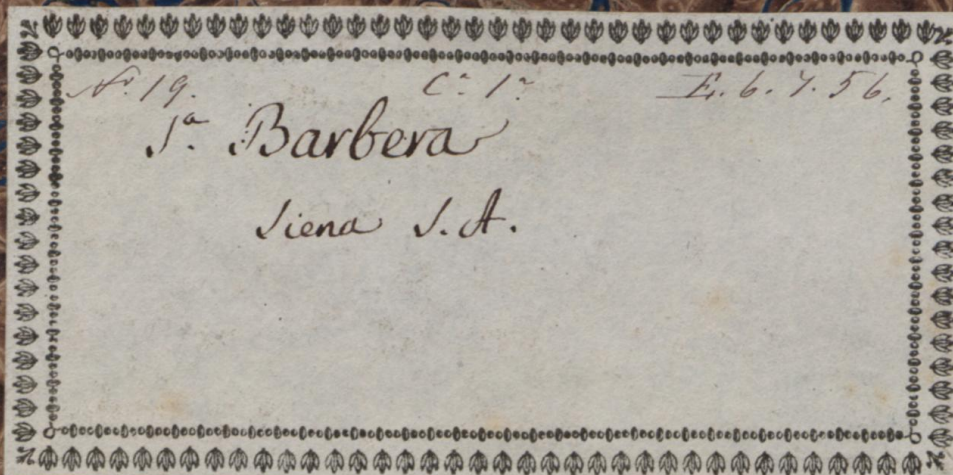 N.º 19. C.e 1.a E. 6. 7. 56.
S.a Barbera
Siena S. A.